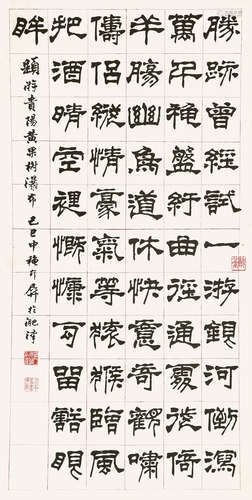 勝跡曾經試一游銀河倒瀉
萬千穐盤紆曲徑通倚
羊腸幽鳥道休快意奇觀嘯
儔侶縱情豪氣等猿猴臨風
把酒晴空裡慨慷可留豁眼
眸
題游貴陽黃果樹瀑布 己巳中穐